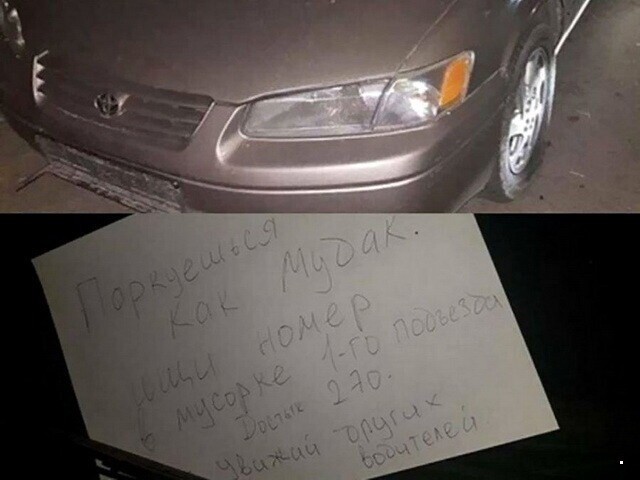 Паркуешься
как мудак.
ищи номер
в мусорке 1-го подъезда
Достык 270.
уважай других
водителей